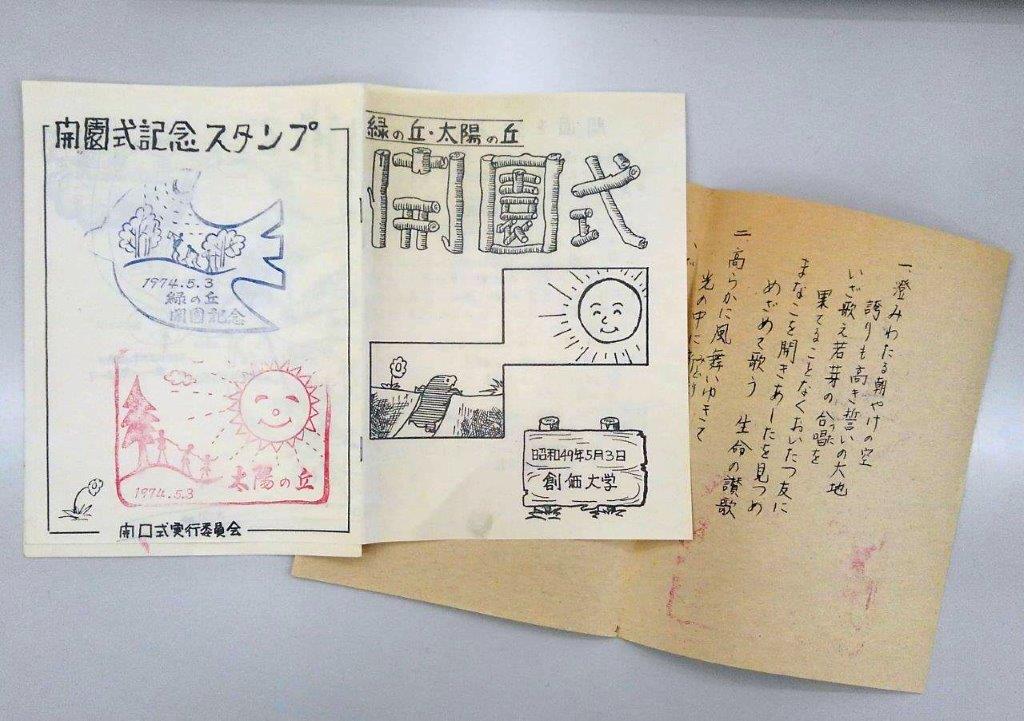 開園式記念スタンプ
1974.5.3
緑の丘
開園記念
太陽の丘
1974.5.3
開口式実行委員会
緑の丘・太陽の丘
開園式
昭和49年5月3日
創価大学
一、澄みわたる朝やけの空
誇りも高き誓いの大地
いざ歌え若芽の合唱を
果てることなくおいたつ友に
まなこを開きあしたを見つめ
めざめて歌う 生命の讃歌
二、高らかに風舞いゆきて
光の中に